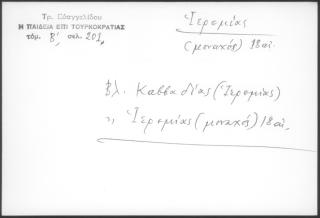 Τρ. Εὐαγγελίδου
Η ΠΑΙΔΕΙΑ ΕΠΙ ΤΟΥΡΚΟΚΡΑΤΙΑΣ
τόμ. Β', σελ. 201
Ἱερεμίας
(μοναχός) 18 αἰ.
Βλ. Καββαδίας (Ἱερεμίας)
ἢ Ἱερεμίας (μοναχός) 18 αἰ.